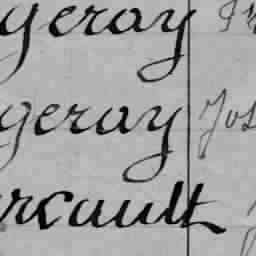 geray
geray Jos
rcault